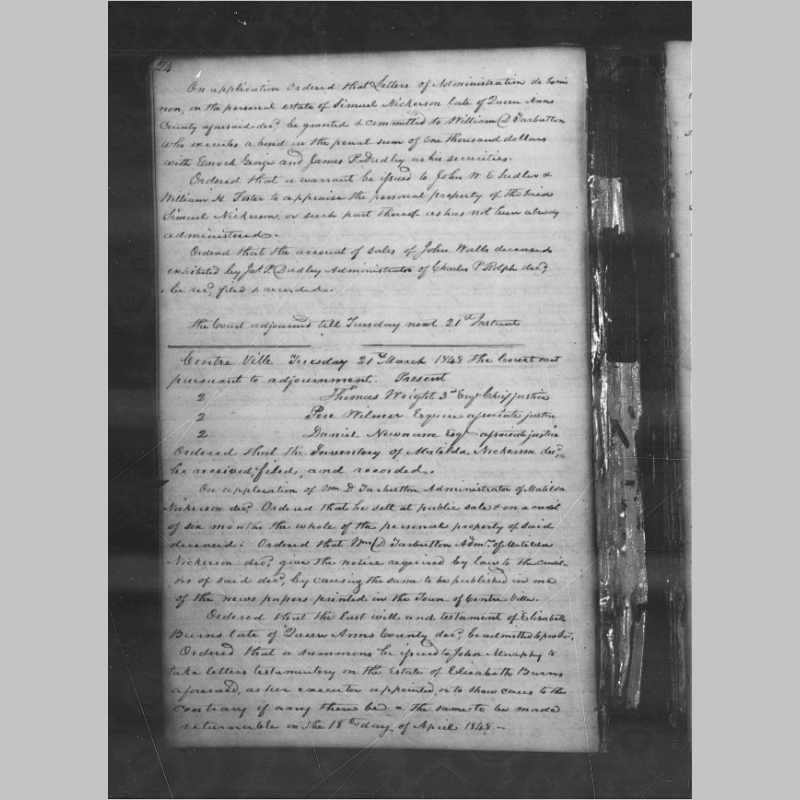 24
On application ordered that Letters of Administration de bonis
non, on the personal estate of Simuel Nickerson late of Queen Anns
County aforesaid decd. be granted & committed to William D Tarbutton
who executes a bond in the penal sum of one thousand dollars
with Enoch George and James P. Dudley as his securities.
Ordered that a warrant be issued to John W. E. Sudler &
William H. Foster to appraise the personal property of the said
Simuel Nickerson, or such part thereof as has not been already
administered.
Ordered that the account of sales of John Walls deceased
exhibited by Jas. P. Dudley Administrator of Charles P. Rolph decd.
be recd, filed & recorded.
The Court adjourned till Tuesday next 21st Instant
Centre Ville Tuesday 21st March 1848 The Court met
pursuant to adjournment. Present
2 Thomas Wright 3d Esqr Chief justice
2 Pere Wilmer Esquire associate justice
2 Daniel Newnam Esqr associate justice
Ordered that the Inventory of Matilda Nickerson decd.
be received, filed, and recorded.
On application of Wm D Tarbutton Administrator of Matilda
Nickerson decd. Ordered that he sell at public sale & on a credit
of six months the whole of the personal property of said
deceased: Ordered that Wm D Tarbutton Admr. of Matilda
Nickerson decd. give the notice required by law to the credit-
ors of said decd, by causing the same to be published in one
of the news papers printed in the Town of Centre Ville.
Ordered that the last will and testament of Elizabeth
Burns late of Queen Anns County decd. be admitted to probat.
Ordered that a summons be issued to John Murphy to
take letters testamentary on the Estate of Elizabeth Burns
aforesaid, as her executor appointed, or to shew cause to the
contrary if any there be - the same to be made
returnable on the 18th day of April 1848.-